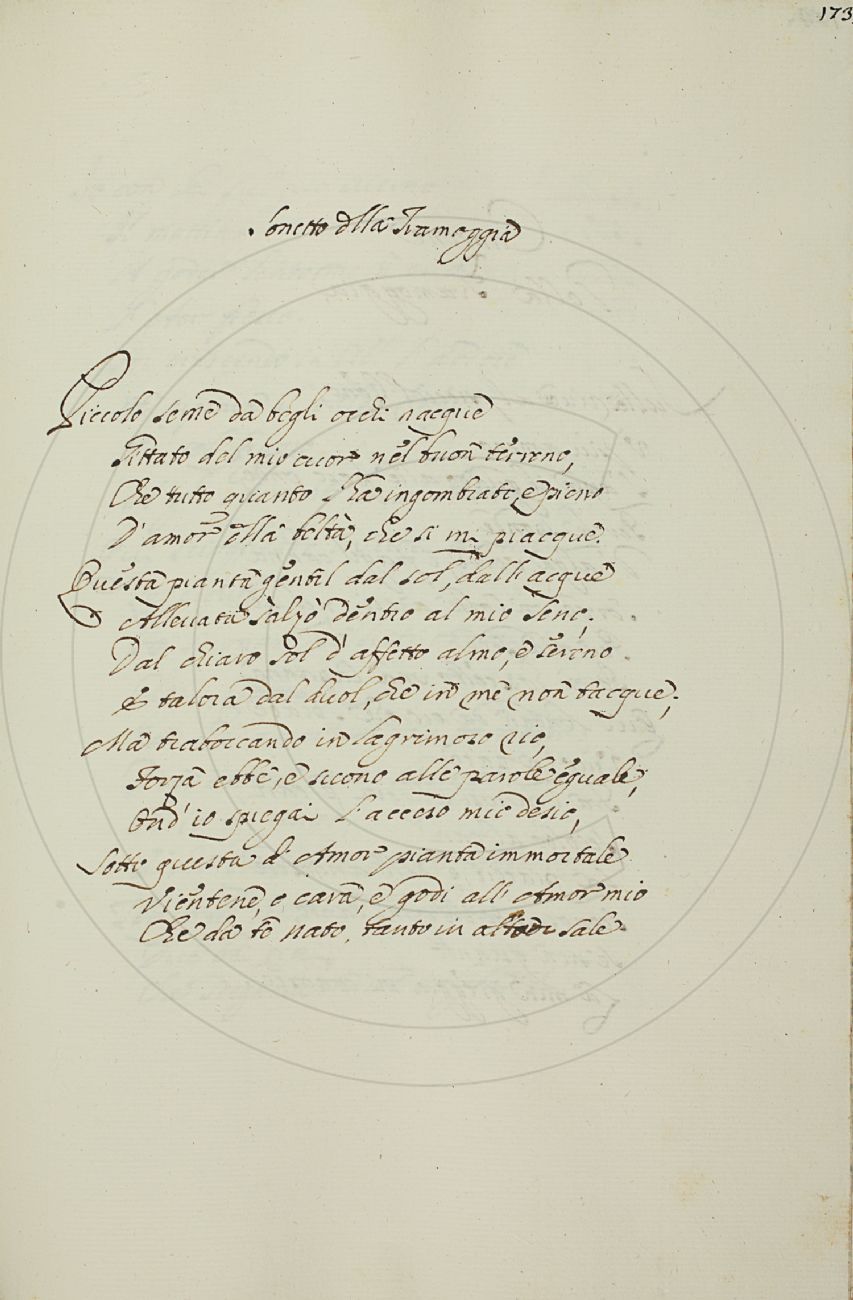 173
Sonetto della Trameggia
Piccolo seme da begli occhi nacque
Gittato del mio cuor nel buon terreno,
Che tutto quanto l'ha ingombrato, e pieno
D'amor della beltà, che si mi piacque.
Questa pianta gentil dal sol, dall'acque
Allevata s'alzò dentro al mio seno;
Dal chiaro sol d'affetto almo, e sereno
E talora dal duol, che in me non tacque;
Ma traboccando in lagrimoso rio,
Forza ebbe, e suono alle parole eguale;
Ond'io spiegai l'acceso mio desio,
Sotto questa d'Amor pianta immortale
Vientene, o cara, e godi all'Amor mio
Che da te nato, tanto in alto sale